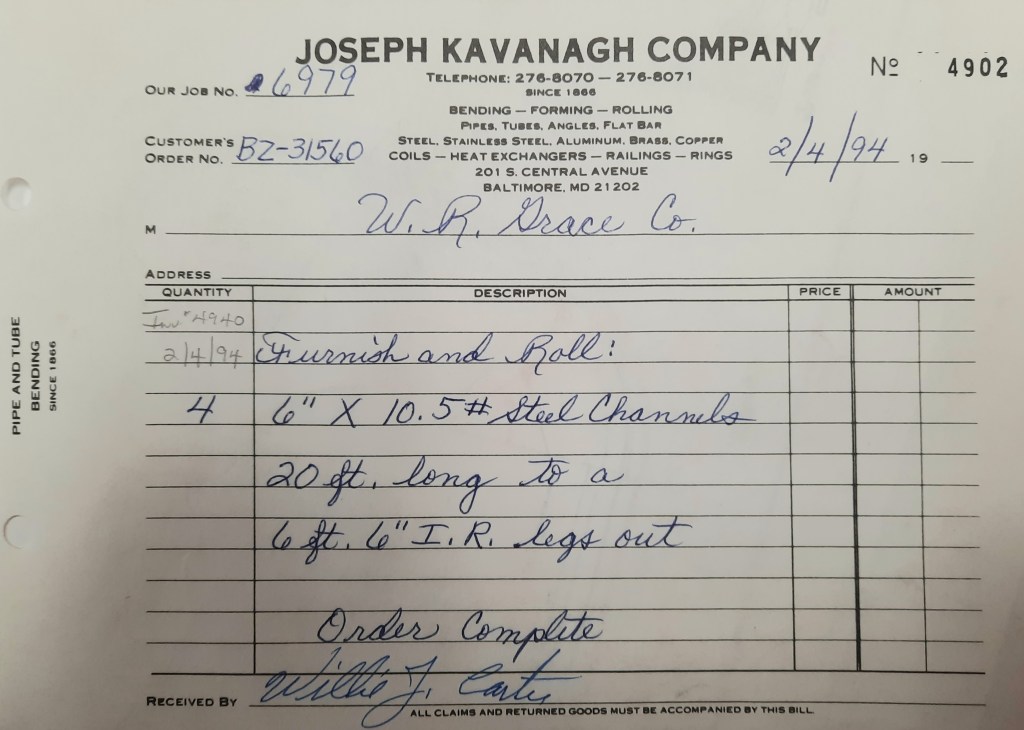 JOSEPH KAVANAGH COMPANY
Nº 4902
TELEPHONE: 276-8070 — 276-8071
OUR JOB NO. 6979
SINCE 1866
BENDING — FORMING — ROLLING
PIPES, TUBES, ANGLES, FLAT BAR
CUSTOMER'S ORDER NO. BZ-31560
STEEL, STAINLESS STEEL, ALUMINUM, BRASS, COPPER
COILS — HEAT EXCHANGERS — RAILINGS — RINGS
2/4/94 19
201 S. CENTRAL AVENUE
BALTIMORE, MD 21202
M W. R. Grace Co.
ADDRESS
QUANTITY DESCRIPTION PRICE AMOUNT
Inv # 4940
2/4/94 Furnish and Roll:
4 6" X 10.5# Steel Channels
20 ft. long to a
6 ft. 6" I.R. legs out
Order Complete
RECEIVED BY Willie J. Carter
ALL CLAIMS AND RETURNED GOODS MUST BE ACCOMPANIED BY THIS BILL
PIPE AND TUBE
BENDING
SINCE 1866